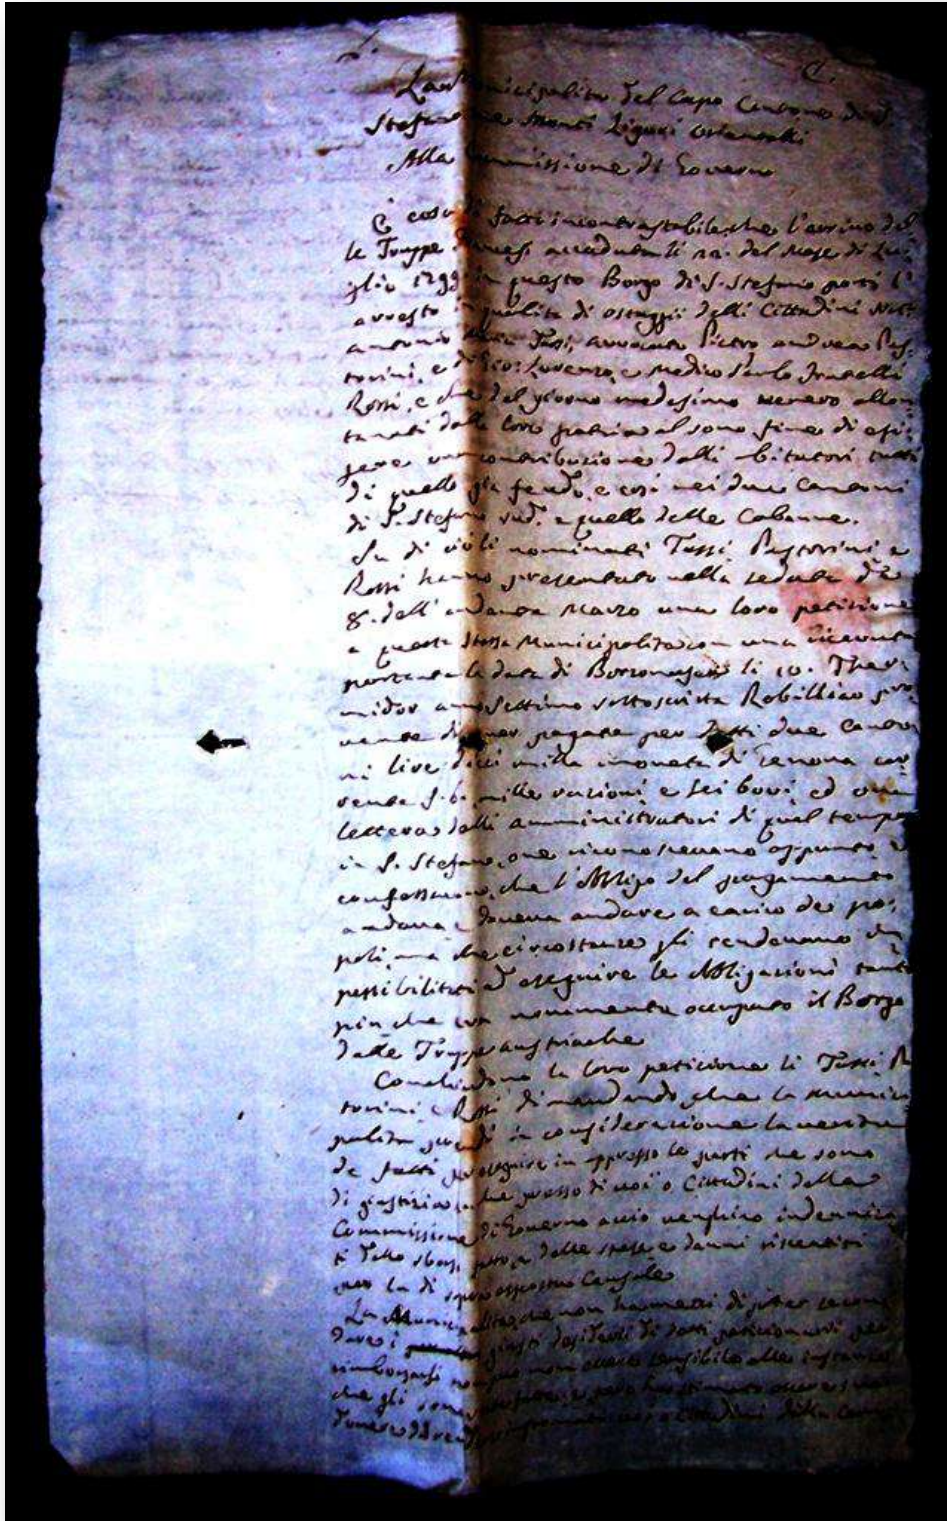 L. C.
La Municipalità del Capo Cantone di S.
Stefano ne Monti Liguri Orientali
Alla Commissione di Governo
È cosa di fatto incontrastabile, che l'arrivo del
le Truppe Francesi accaduta li del Mese di Lu
glio 1799 in questo Borgo di S. Stefano portò l'
arresto in qualità di ostaggi delli Cittadini
Antonio Maria Tassi, avvocato Pietro Andrea Pas
torini, e di Gio: Lorenzo, e Medico Paolo fratelli
Rossi, e che dal giorno medesimo venero allon
tanati dalla loro patria al solo fine di esi
gere una contribuzione dalli abitatori tutti
di quello già feudo, e così nei due Cantoni
di S. Stefano sud.º e quello delle Cabanne.
Su di ciò li nominati Tassi Pastorini e
Rossi hanno presentato nella seduta de
8. dell'andante Marzo una loro petizione
a questa stessa Municipalità con una ricevuta
portante la data di Bormonasco li 10. Ther
midor anno settimo sottoscritta Robilliao
pagate per detti due Canto
ni lire dieci milla moneta di Genova cor
rente f. b. mille razioni e sei bovi, ed una
lettera dalli amministratori di quel tempo
in S. Stefano, che riconoscevano appunto, e
confessavano, che l'obbligo del pagamento
andava e doveva andare a carico de po=
poli, ma che circostanze gli rendevano im
possibilitati ad eseguire le obbligazioni tanto
più che era novamente occupato il Borgo
dalle Truppe austriache
Concludono la loro petizione li Tassi Pa
torini e Rossi dimandando, che la Munici
palità prendi in considerazione la verità
de fatti per eseguire in appresso le parti che sono
di giustizia anche presso di voi o Cittadini della
Commissione di Governo acciò venghino indennizza
ti dello sborso fatto, e delle spese e danni risentiti
per la di sopra espostavi Causale
La Municipalità, che non ha mezzi di poter secon
dare i giusti desideri di detti petizionarii per
rimborsarli non può non essere sensibile alle instanze
che gli sono e però ha stimato essere suo
dovere di rendere informati voi o Cittadini della Commis